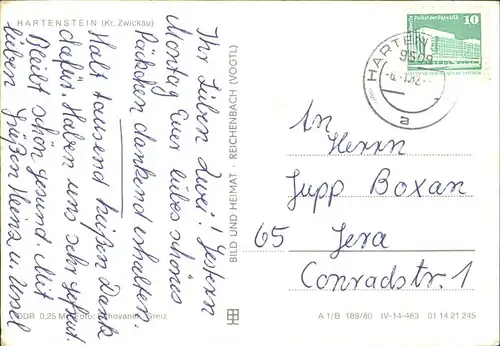 HARTENSTEIN (Kr. Zwickau)
Ihr lieben Zwei! Gestern
Montag Euer liebes schönes
Päckchen dankend erhalten.
Halt tausend süßen Dank
dafür. Haben uns sehr gefreut.
Bleibt schön gesund. Mit
lieben Grüßen Heinz u. Ursel
DDR 0,25 M Foto: Chovanetz, Greiz
BILD UND HEIMAT · REICHENBACH (VOGTL)
Palast der Republik
10
HARTEN
9509
a
An
Herrn
Jupp Boxan
65 Jera
Conradstr. 1
A 1/B 189/80 IV-14-483 01 14 21 245